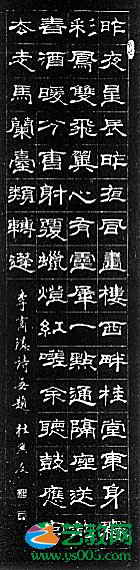 昨夜星辰昨夜風畫樓西畔桂堂東身無
彩鳳雙飛翼心有靈犀一點通隔座送
春酒暖分曹射覆蠟燈紅嗟余聽鼓應
去走馬蘭臺類轉蓬
李商隱詩無題 杜
艺教网
www.ys005.com